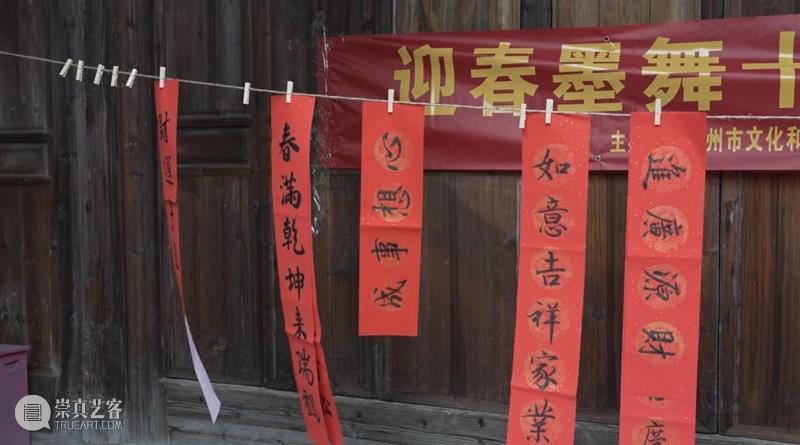 迎春墨舞十
主
州市文化和
財運
春滿乾坤来瑞鶴
心想事成
如意吉祥家業
進廣源財
廣
崇真艺客
TRUEART.COM